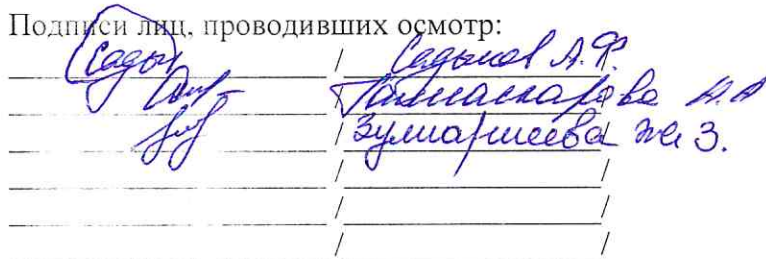 Подписи лиц, проводивших осмотр:
Садык / Садыков А.Ф. /
/ А.А /
/ Зулмаршеева Ж. З. /
/ /
/ /
/ /